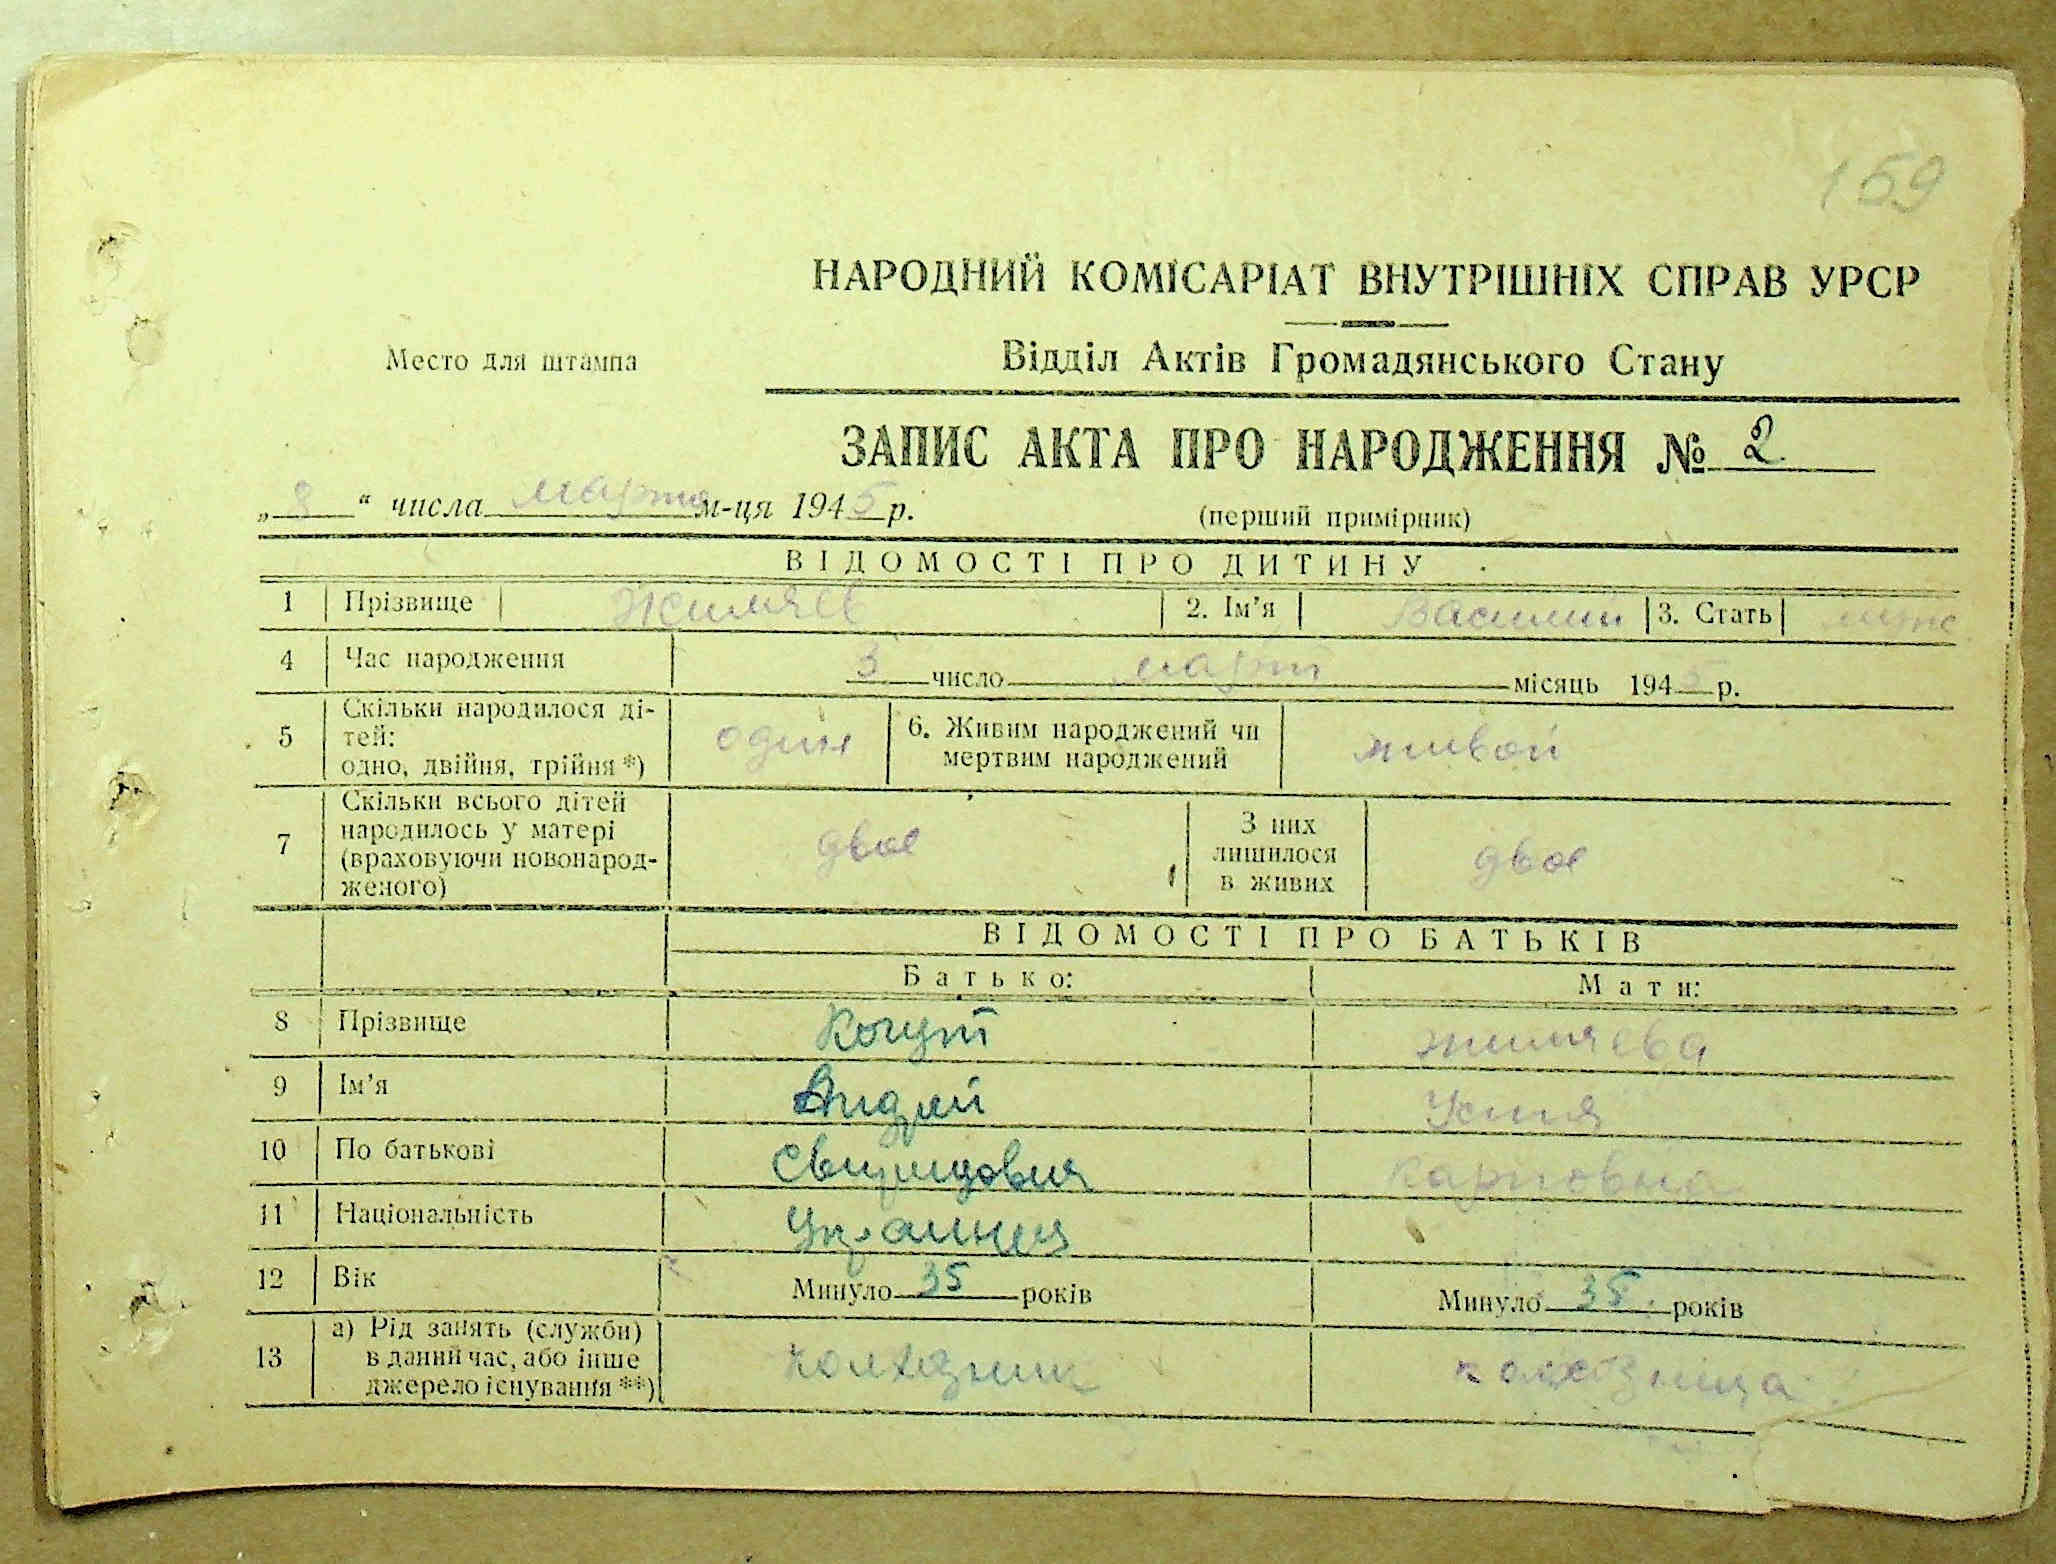 159
НАРОДНИЙ КОМІСАРІАТ ВНУТРІШНІХ СПРАВ УРСР
Место для штампа
Відділ Актів Громадянського Стану
ЗАПИС АКТА ПРО НАРОДЖЕННЯ № 2.
„ 8 “ числа марта м-ця 1945 р.
(перший примірник)
ВІДОМОСТІ ПРО ДИТИНУ
1 Прізвище Жиляев 2. Ім’я Василий 3. Стать муж
4 Час народження 3 число март місяць 1945 р.
5 Скільки народилося ді-
тей:
одно, двійня, трійня *) один 6. Живим народжений чи
мертвим народжений живой
7 Скільки всього дітей
народилось у матері
(враховуючи новонарод-
женого) двое З них
лишилося
в живих двое
ВІДОМОСТІ ПРО БАТЬКІВ
Батько: Мати:
8 Прізвище Когут Жиляева
9 Ім’я Андрей
10 По батькові Карповна
11 Національність Украинец
12 Вік Минуло 35 років Минуло 35 років
13 а) Рід занять (служби)
в даний час, або інше
джерело існування **) колхозник колхозница